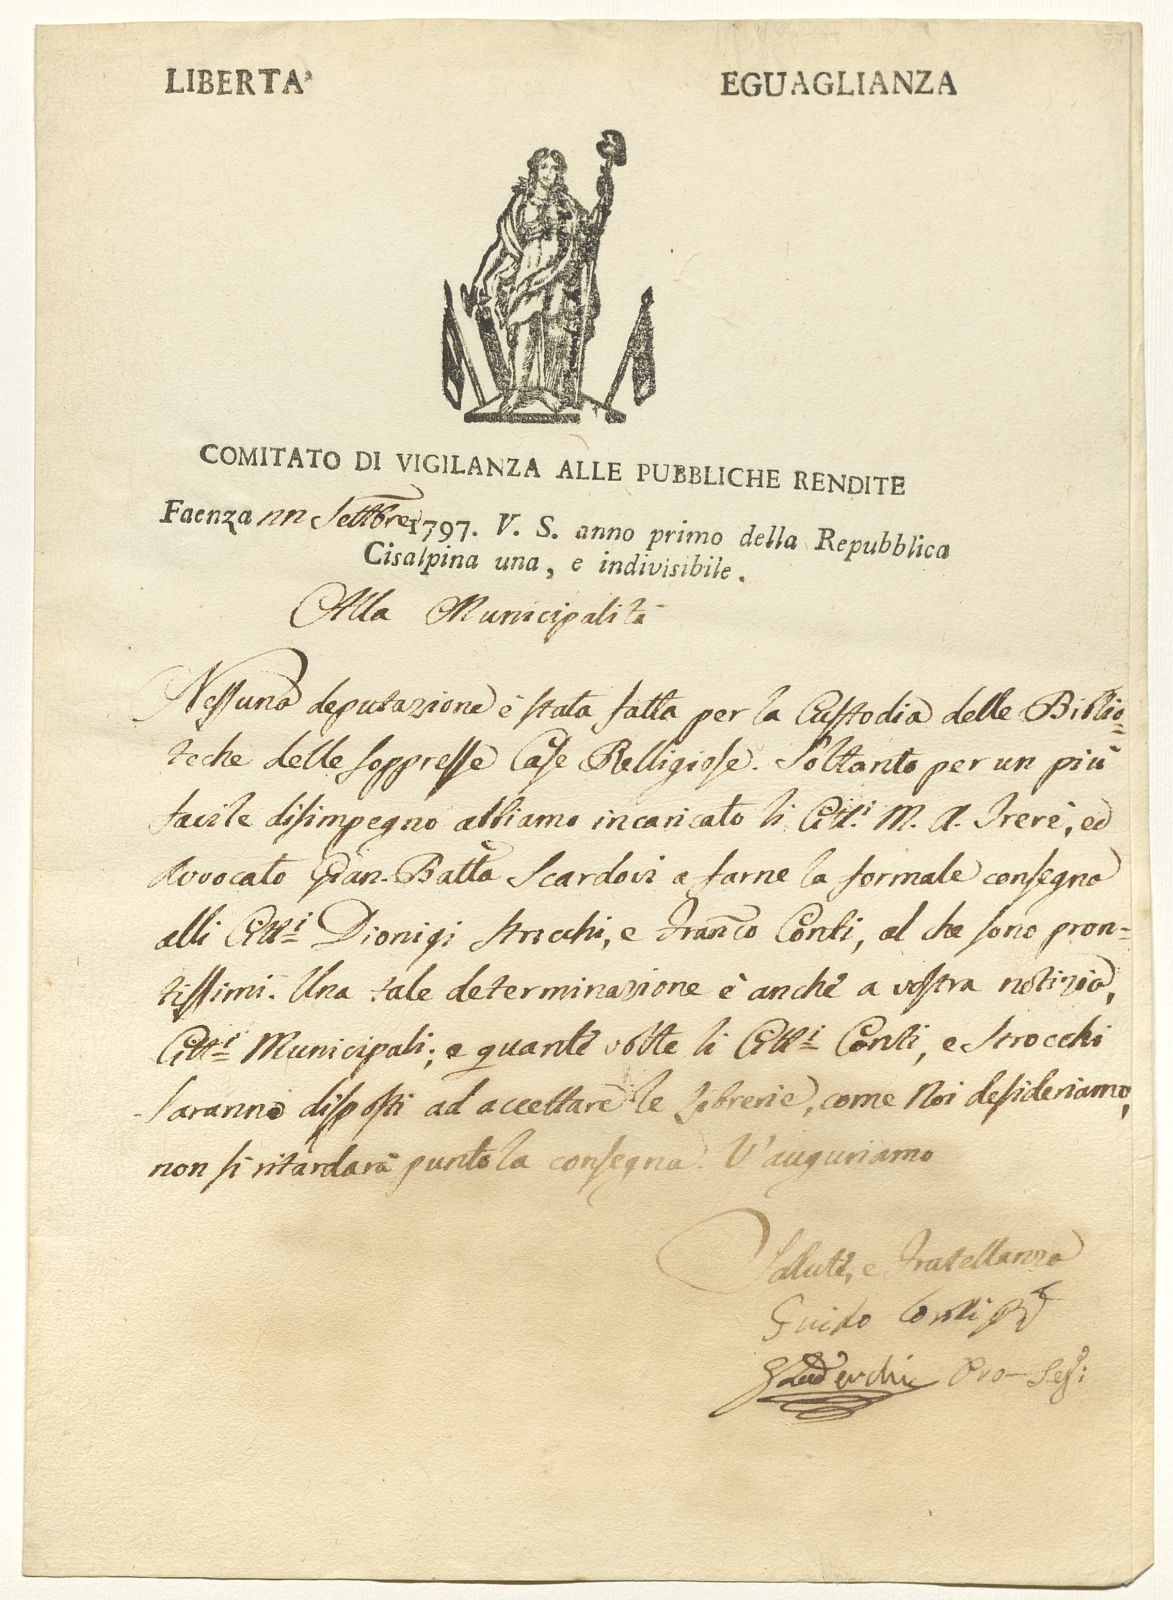 LIBERTA'
EGUAGLIANZA
COMITATO DI VIGILANZA ALLE PUBBLICHE RENDITE
Faenza Settbre 1797. V. S. anno primo della Repubblica
Cisalpina una, e indivisibile.
Alla Municipalità
Nessuna deputazione è stata fatta per la Custodia delle Biblio=
teche delle soppresse Case Relligiose. Soltanto per un più
facile disimpegno abbiamo incaricato li Citt.i M. A. ed
Avvocato Gian-Batta Scardovi a farne la formale consegna
alli Citt.i Dionigi Strocchi, e Franco Conti, al che sono pron=
tissimi. Una tale determinazione è anche a vostra notizia,
Citt.i Municipali; e quante volte li Citt.i Conti, e Strocchi
saranno disposti ad accettare le Librerie, come Noi desideriamo,
non si ritarderà punto la consegna. V'auguriamo
Salute, e Fratellanza
Guido Conti
Pro-Seg: